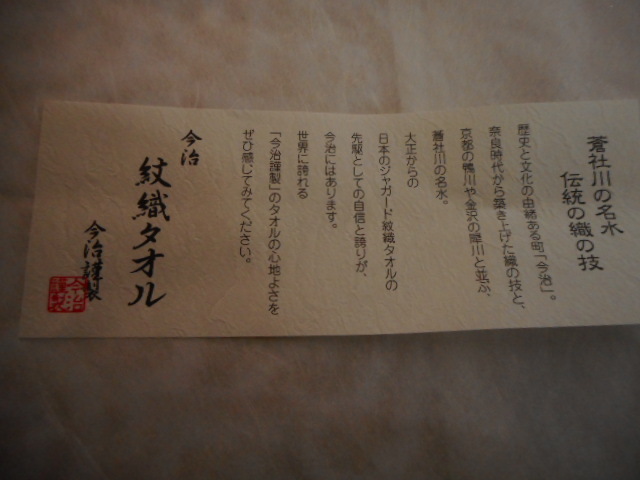 蒼社川の名水
伝統の織の技
歴史と文化の由緒ある町「今治」。
奈良時代から築き上げた織の技と、
京都の鴨川や金沢の犀川と並ぶ、
蒼社川の名水。
大正からの
日本のジャガード紋織タオルの
先駆としての自信と誇りが、
今治にはあります。
世界に誇れる
「今治謹製」のタオルの心地よさを
ぜひ感じてみてください。
今治
紋織タオル
今治謹製